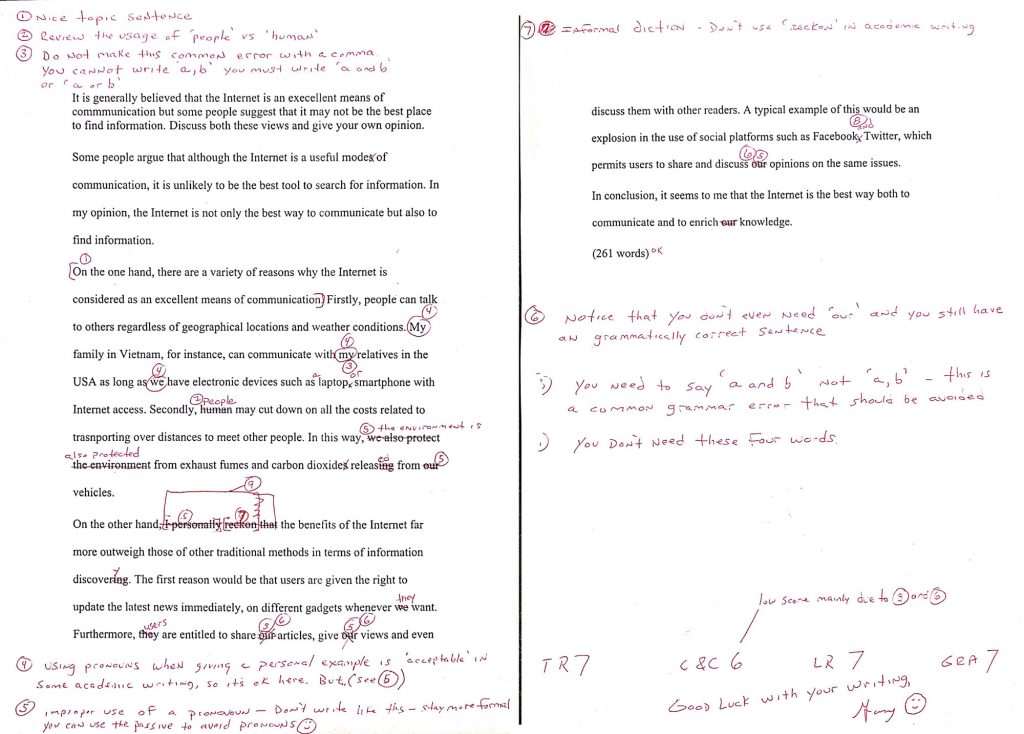 ① Nice topic sentence
② Review the usage of 'people' vs 'human'
③ Do not make this common error with a comma.
You cannot write 'a, b' you must write 'a and b'
or 'a or b'
It is generally believed that the Internet is an execellent means of
commmunication but some people suggest that it may not be the best place
to find information. Discuss both these views and give your own opinion.
Some people argue that although the Internet is a useful modes of
communication, it is unlikely to be the best tool to search for information. In
my opinion, the Internet is not only the best way to communicate but also to
find information.
①
[On the one hand, there are a variety of reasons why the Internet is
considered as an excellent means of communication.] Firstly, people can talk
④
to others regardless of geographical locations and weather conditions. My
④
family in Vietnam, for instance, can communicate with my relatives in the
④ ③
a or
USA as long as we have electronic devices such as laptop, smartphone with
② people
Internet access. Secondly, human may cut down on all the costs related to
trasnporting over distances to meet other people. In this way, we also protect
⑤ the environment is
also protected
the environment from exhaust fumes and carbon dioxides releasing from our
ed ⑤
vehicles.
⑨
⑤ ⑦
On the other hand, I personally reckon that the benefits of the Internet far
more outweigh those of other traditional methods in terms of information
y
discovering. The first reason would be that users are given the right to
they
update the latest news immediately, on different gadgets whenever we want.
users ⑤ ⑥ ⑤ ⑥
Furthermore, they are entitled to share our articles, give our views and even
④ Using pronouns when giving a personal example is 'acceptable' in
some academic writing, so it's ok here. But, (see ⑤)
⑤ improper use of a pronoun – Don't write like this – stay more formal
you can use the passive to avoid pronouns
⑦ Informal diction - Don't use 'reckon' in academic writing
discuss them with other readers. A typical example of this would be an
⑧ and
explosion in the use of social platforms such as Facebook, Twitter, which
⑥ ⑤
permits users to share and discuss our opinions on the same issues.
In conclusion, it seems to me that the Internet is the best way both to
communicate and to enrich our knowledge.
(261 words) OK
⑥ Notice that you don't even need 'our' and you still have
an grammatically correct sentence
You need to say 'a and b' not 'a, b' - this is
a common grammar error that should be avoided
You don't need these four words.
low score mainly due to ⑤ and ⑥
TR 7 C&C 6 LR 7 GRA 7
Good Luck with your writing,